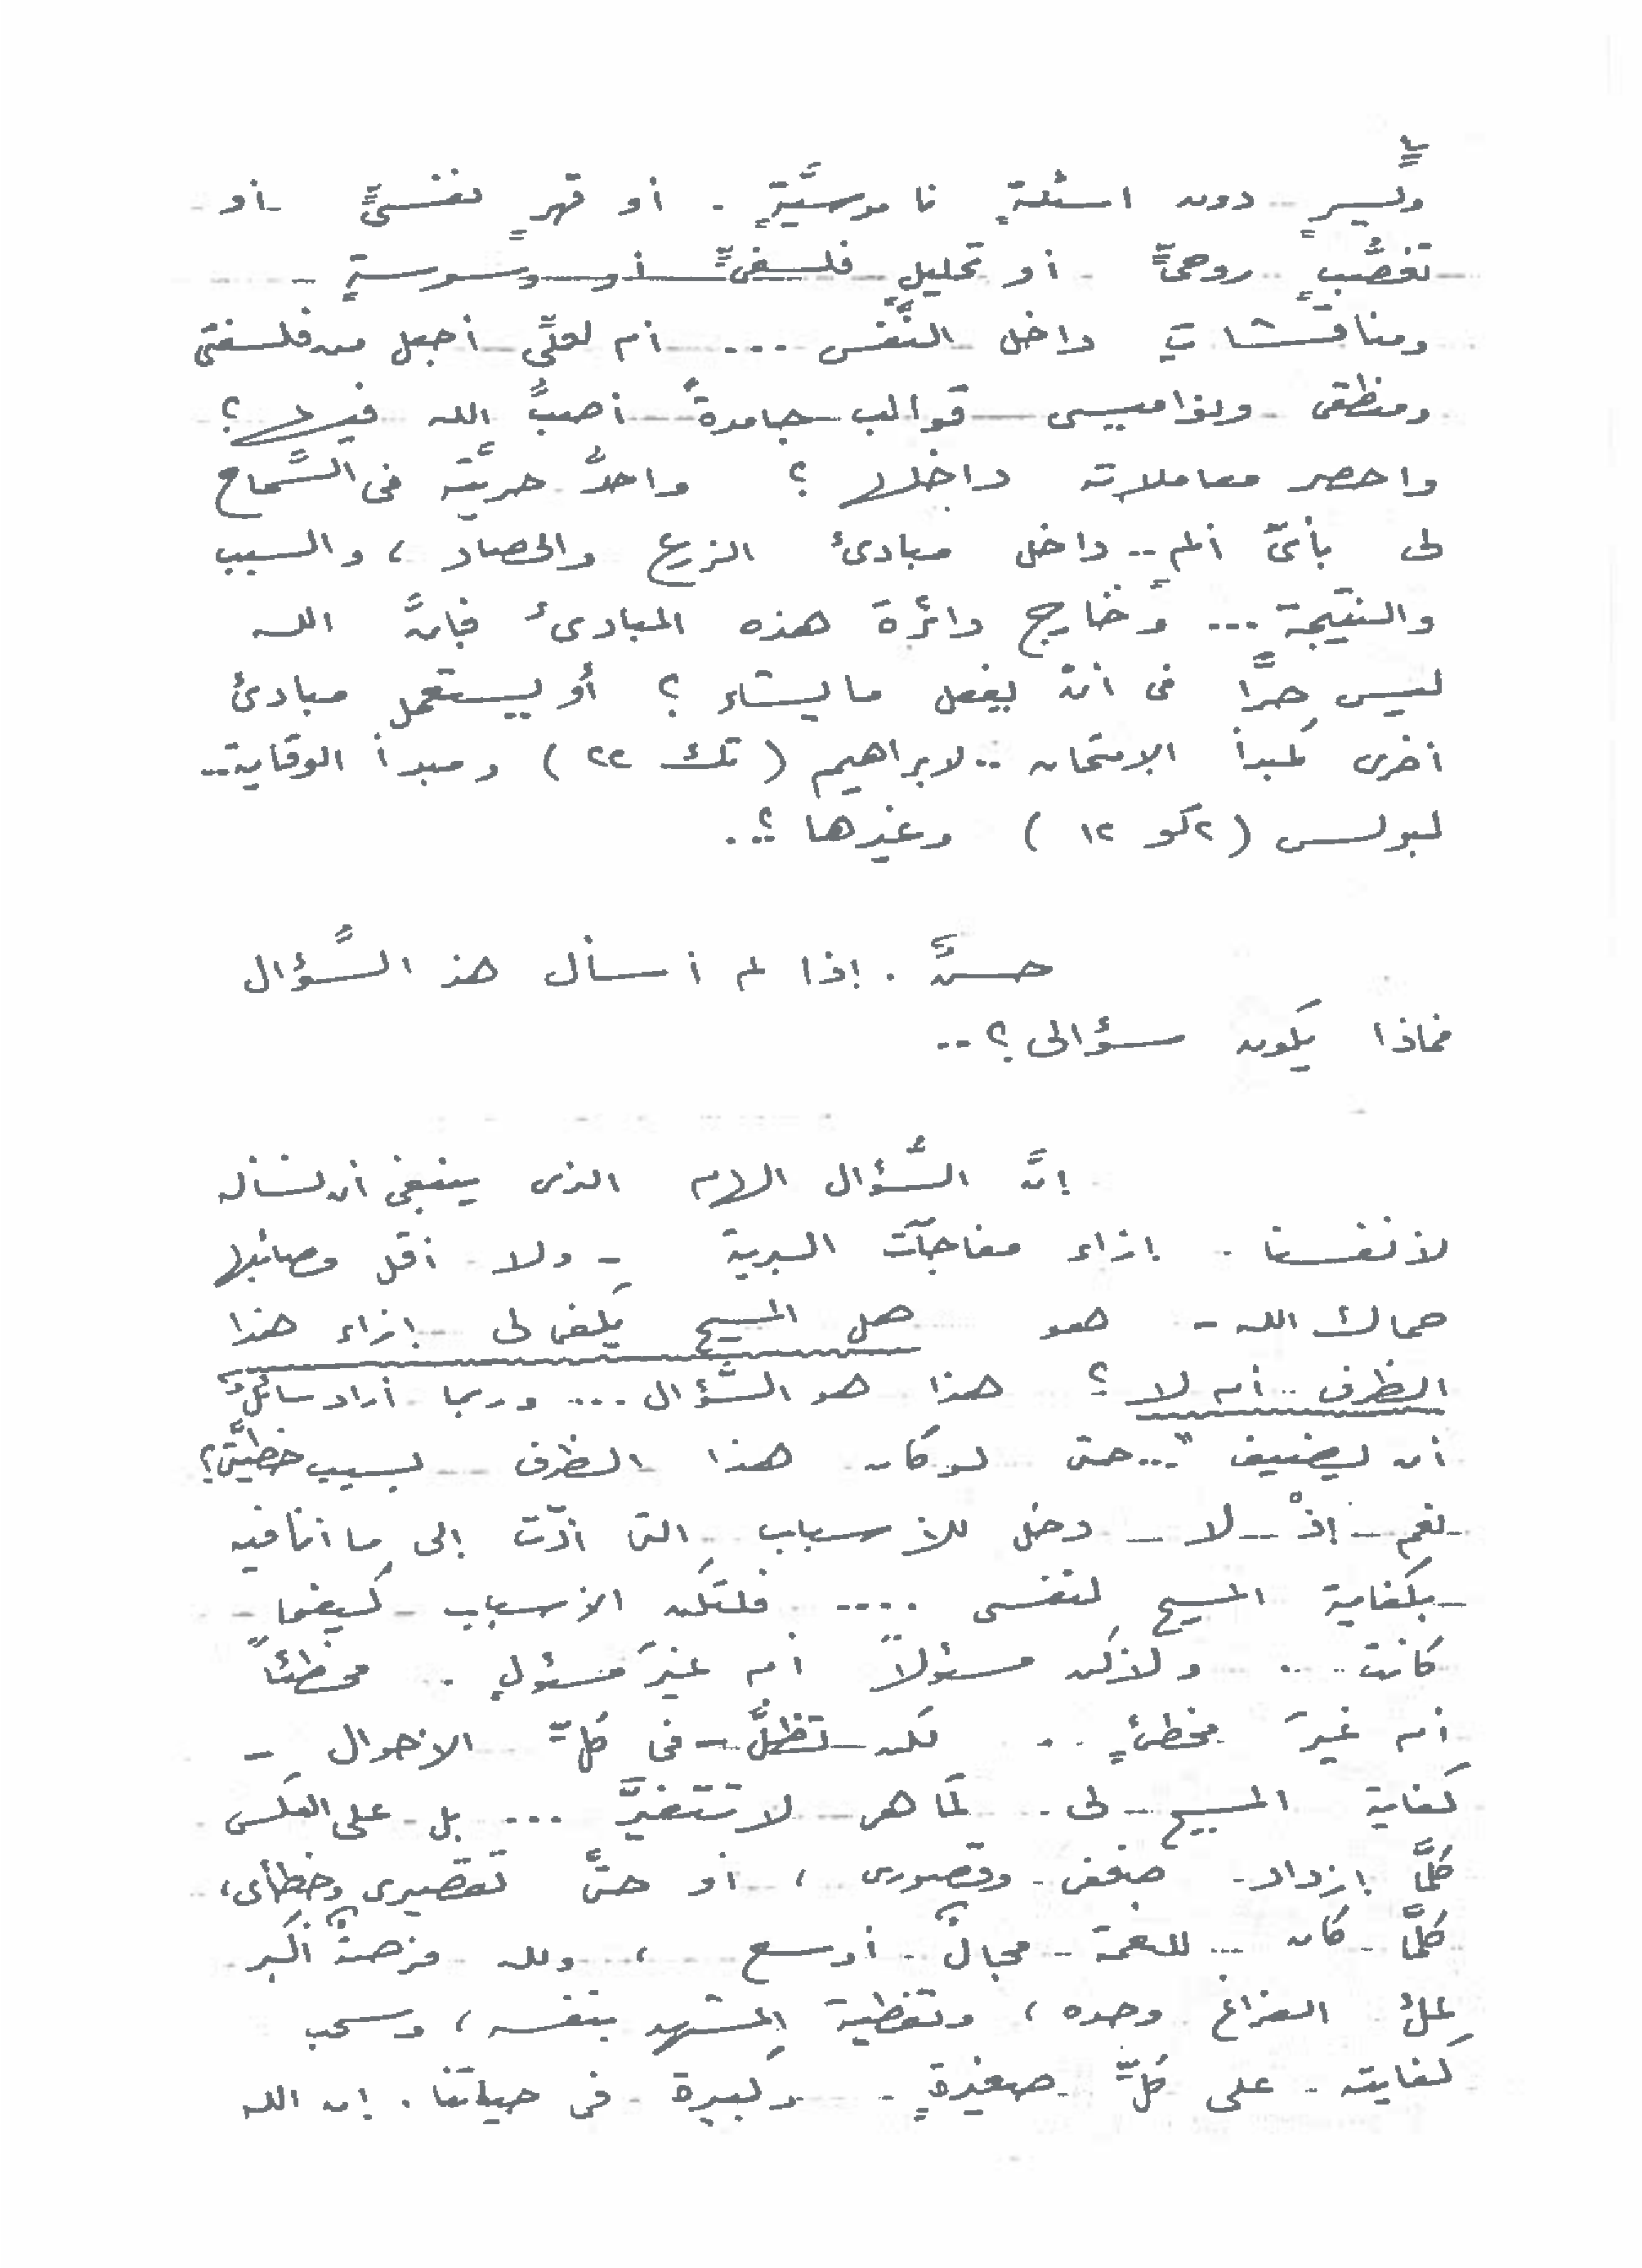 ويُسرٍ دون اسئلةٍ ناموسيَّةٍ . أو قهرٍ نفسىٍّ أو
تغصُّبٍ روحىٍّ أو تحليلٍ فلسفىٍّ أو وسوسةٍ -
ومناقشاتٍ داخل النَّفس ... أم لعلِّى أجعل من فلسفتى
ومنطقى ونواميسى قوالب جامدةً أصبُّ الله فيها ؟
واحصر معاملاته داخلها ؟ واحدُّ حريَّته فى السَّماح
لى بأىِّ ألمٍ .. داخل مبادئ الزرع والحصاد ، والسبب
والنتيجة ... وَخارج دائرة هذه المبادىء فإنَّ الله
ليس حرًّا فى أنْ يفعل ما يشاء ؟ أو يستعمل مبادئ
أخرى كمبدأ الإمتحان .. لابراهيم ( تك ٢٢ ) ومبدأ الوقاية ..
لبولس ( ٢كو ١٢ ) وغيرها ؟ ..
حسنٌ . إذا لم أسأل هذ السُّؤال
فماذا يكون سؤالى ؟ ..
إنَّ السُّؤال الهام الذى ينبغى أن نسأله
لأنفسنا . إزاء مفاجآت البرية - ولا أقل مصائبها
حماك الله - هو هل المسيح يكفى لى إزاء هذا
الظرف .. أم لا ؟ هذا هو السُّؤال ... وربما أراد سائلٌ
أن يضيف " ... حتى لو كان هذا الظرف بسبب خطيَّتى ؟
نعم . إذْ - لا - دخل للأسباب التى أدّت إلى ما أنا فيه
بكفاية المسيح لنفسى .... فلتكن الأسباب كيفما -
كانت .. ولأكن مسئولاً أم غيرَ مسئولٍ .. مخطئاً
أم غيرَ مخطئٍ .. لكن تظلُّ - فى كلِّ الأحوال -
كفاية المسيح لى . كما هى لا تتغيَّر ... بل على العكس
كلَّما إزداد . ضعفى وقصورى ، أو حتَّى تقصيرى وخطأى ،
كلَّما كان ... للنعمة مجالٌ أوسع ، ولله فرصةٌ أكبر
لملء الفراغ وحده ، وتغطية المشهد بنفسه ، وسحب
كفايته . على كلِّ صغيرةٍ . وكبيرة فى حياتنا . إن الله